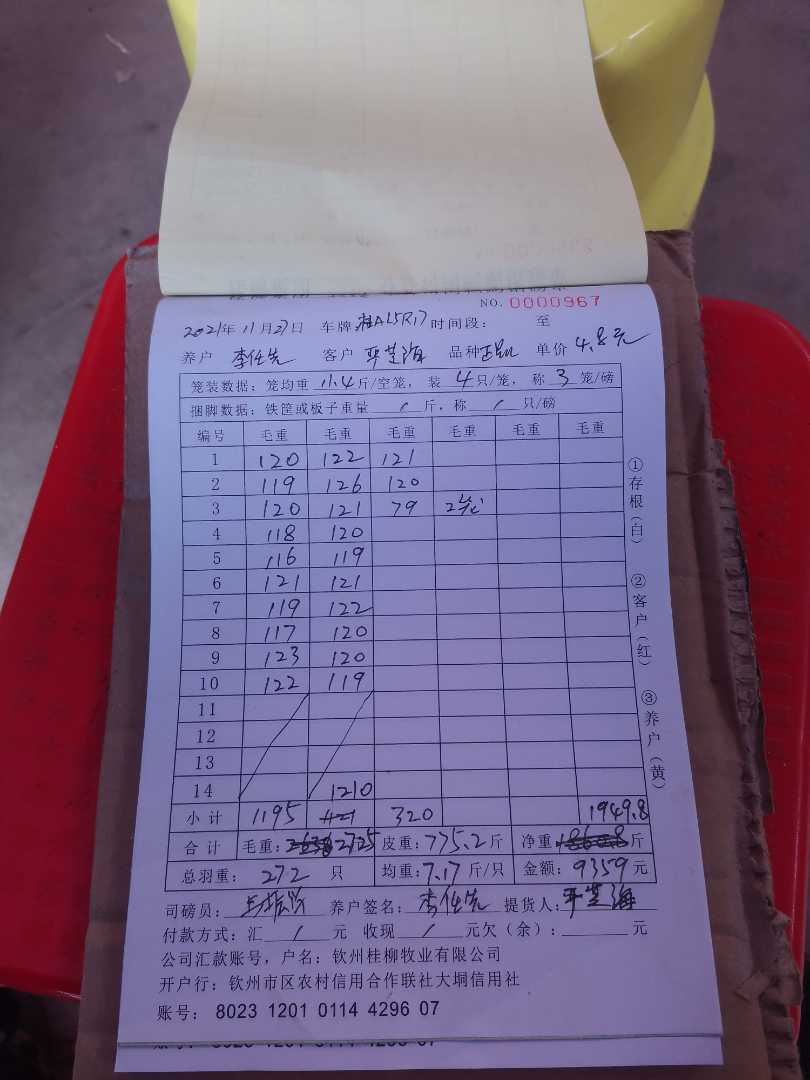 NO. 0000967
2021年 11月27日 车牌桂AL5R17时间段： 至
养户 李仕先 客户 平芝海 品种正凯 单价 4.8元
笼装数据：笼均重 11.4 斤/空笼，装 4 只/笼，称 3 笼/磅
捆脚数据：铁筐或板子重量 / 斤，称 / 只/磅
编号 毛重 毛重 毛重 毛重 毛重 毛重
1 120 122 121
2 119 126 120
3 120 121 79 2笼
4 118 120
5 116 119
6 121 121
7 119 122
8 117 120
9 123 120
10 122 119
11
12
13
14 1210
小计 1195 320 1949.8
合计 毛重：2725 皮重：775.2斤 净重 斤
总羽重：272 只 均重：7.17斤/只 金额：9359元
司磅员： 养户签名：李仕先 提货人：平芝海
付款方式：汇 / 元 收现 / 元欠（余）： 元
公司汇款账号，户名：钦州桂柳牧业有限公司
开户行：钦州市区农村信用合作联社大垌信用社
账号：8023 1201 0114 4296 07
①存根（白） ②客户（红） ③养户（黄）